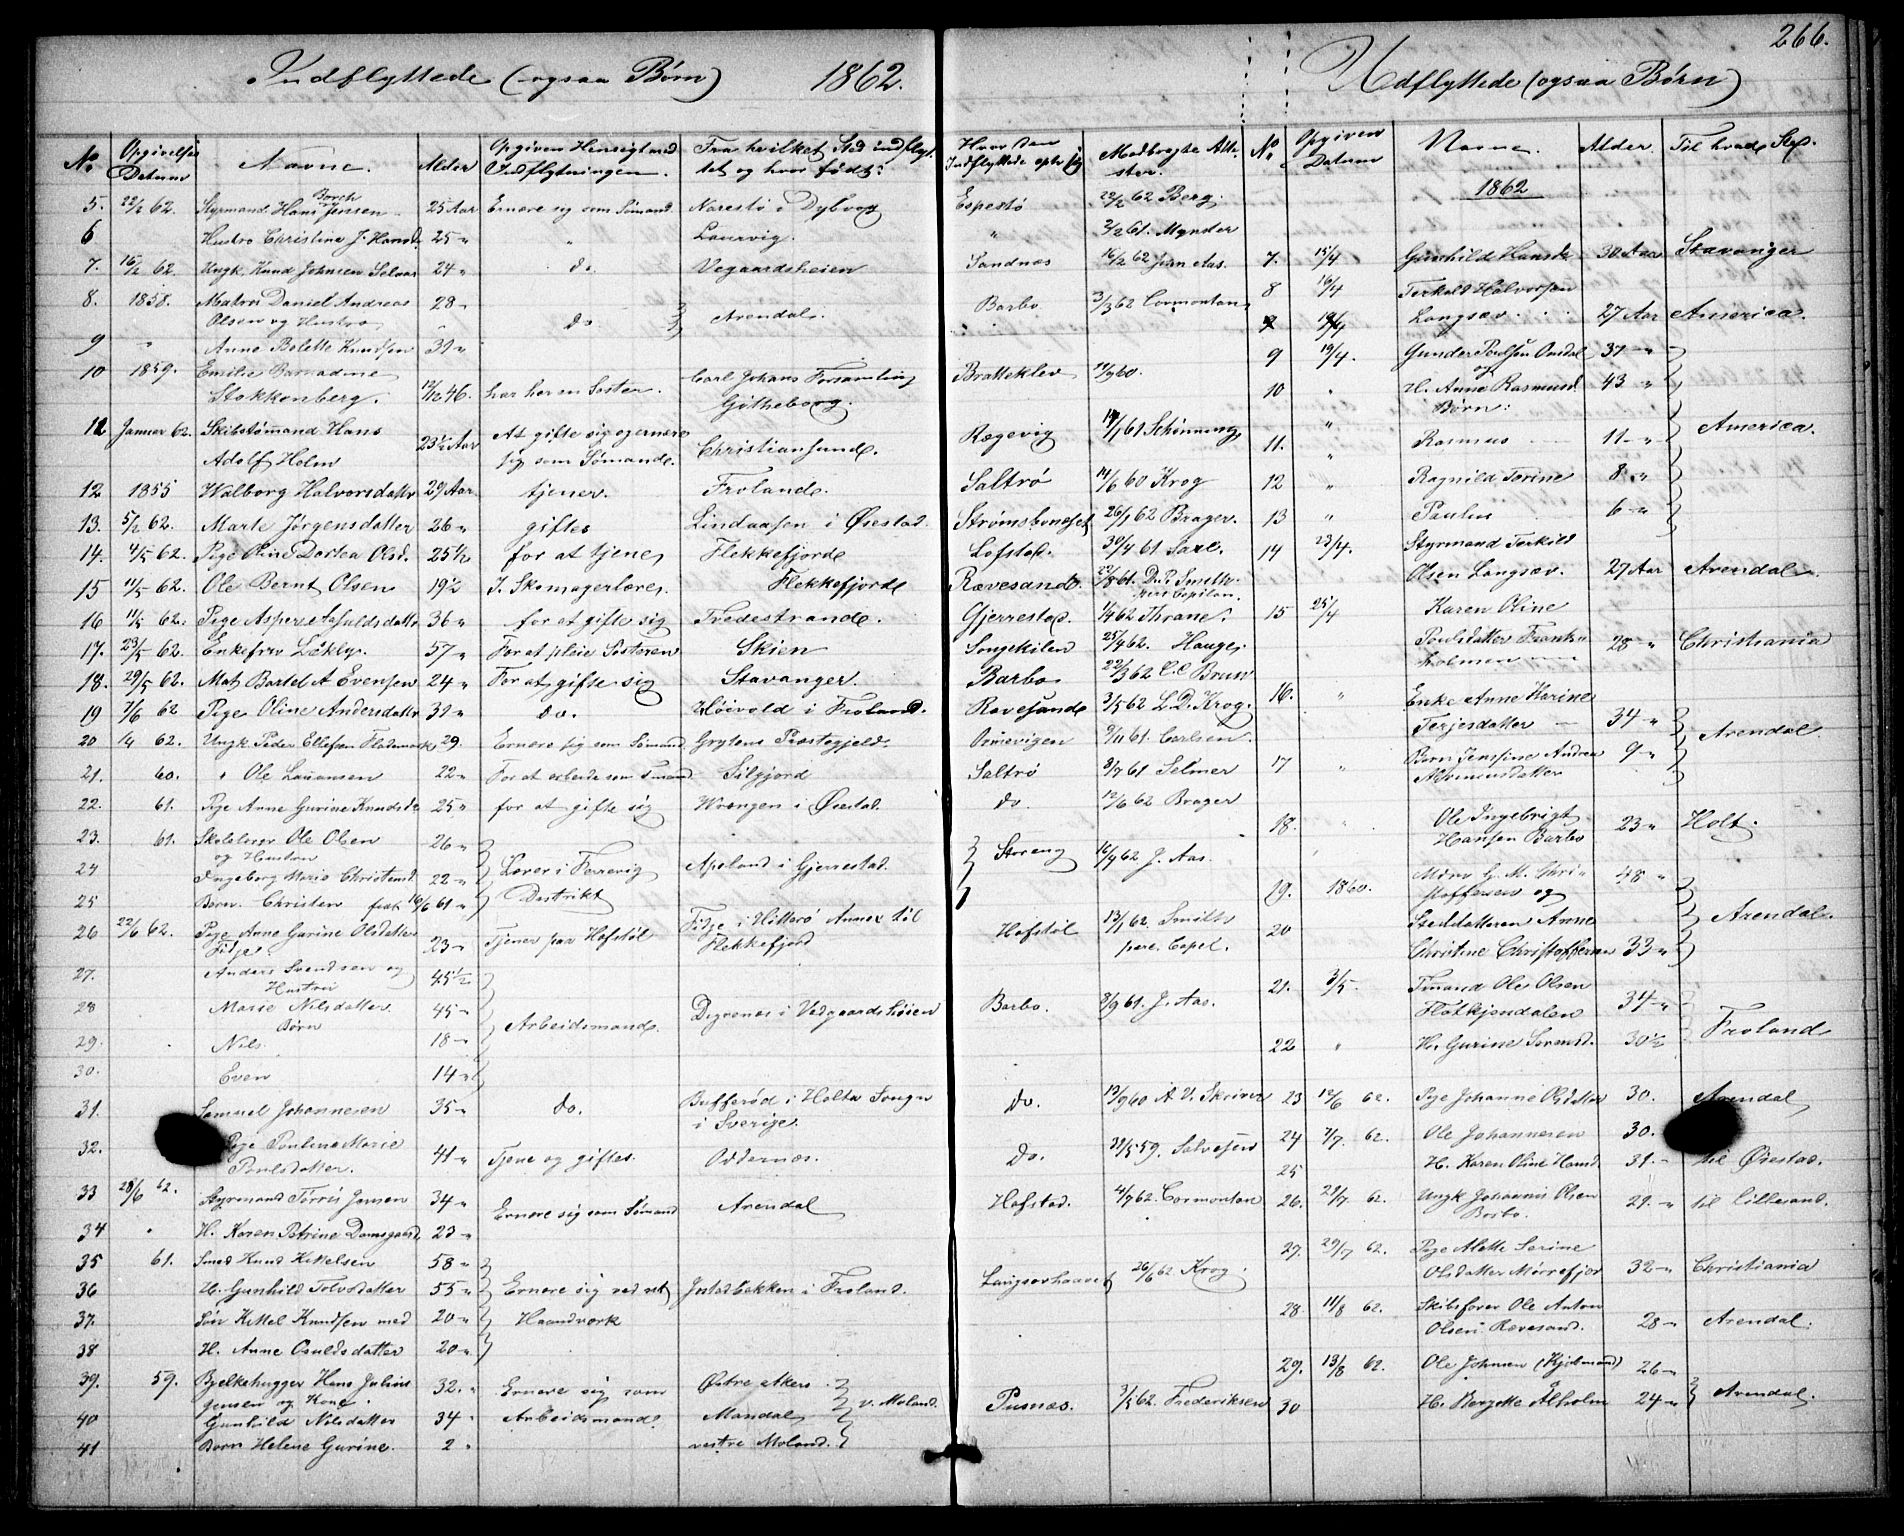 266.
Indflyttede (ogsaa Børn) 1862.
No Opgivelses Datum Navne. Alder Opgiven Hensigt med Indflytningen. Fra hvilket Sted indflyttet og hvor født? Hvor den Indflyttede opholder sig Medbragte Attester.
5. 22/2 62. Styrmand Hans Borch Jenssen 25 Aar Ernære sig som Sømand. Narestø i Dybvog Espestø 22/2 62 Berg.
6 Hustro Christine J. Hansd. 25 " " Laurvig. " 3/2 61. Mynder
7. 16/2 62. Ungk. Knud Johnsen Selvaas 24 " do. Vegaardsheien Sandnæs 16/2 62 Jørn Aas.
8. 1858. Matros Daniel Andreas 28 "
Olsen og Hustro do Arendal. Barbo 3/3 62 Cormontan
9 " Anne Bolette Knudsen 31 "
10 1859. Emilie
Stokkenberg. 12/12 46. har her en Søster. Carl Johans Forsamling Gøtheborg. Bratteklev 14/9 60.
11 Januar 62. Skibstømmand Hans
Adolf Holm 23 1/2 Aar At gifte sig og ernære sig som Sømand. Christiansund. Rægevig 14/1 61 Schønning
12 1855 Walborg Halvorsdatter 29 Aar tjener. Froland. Saltrø 14/6 60 Krog
13. 5/2 62. Marte Jørgensdatter 26 " giftes Lindaasen i Øiestad. Strømsbuneset 26/1 62 Brager.
14. 4/5 62. Pige Oline Dortea Olsd. 25 1/2 for at tjene, Flekkefjord Lofstad. 30/4 61
15 11/5 62. Ole Bernt Olsen 19 1/2 I. Skomagerlære. Flekkefjord Rævesand. 22/8 61. D. P. Smith pers. Capellan.
16 11/5 62. Pige Aspere Aasuldsdatter 36 " for at gifte sig Tvedestrand. Gjerrestad. 1/4 62 Thrane.
17. 23/5 62. Enkefru Løkby. 57 " For at pleie Søsteren Skien Songekilen 25/4 62. Hauge.
18. 29/5 62. Mat. Bartel A Evensen 24 " For at gifte sig Stavanger. Barbo 22/3 62 C.C Brun
19 7/6 62 Pige Oline Andersdatter 31 " do. Høivold i Froland. Ravesand 3/5 62 L. D. Krog.
20 14 62. Ungk. Peder Ellefsen Flademark 29. Ernære sig som Sømand. Grytens Præstegjeld. Omrevigen 9/11 61. Carlsen.
21. 60. " Ole Lauansen 22 " For at arbeide som Tmand Silgjord Saltrø 3/7 61 Selmer
22. 61. Pige Anne Gurine Knudsd. 25 " for at gifte sig Wrængen i Øiestad. do. 12/6 62 Brager
23. 61. Skolelærer Ole Olsen 26 "
og Hustru
24 Ingeborg Marie Christensd. 22 " Lærer i Færevig Distrikt Apeland i Gjerrestad. Storeng 16/4 62 J. Aas.
25 Barn. Christen født 16/6 61 "
26 22/6 62. Pige Anne Gurine Olsdatter
Fidje. 23 " Tjener paa Hofstøl Fidje i Hitterø Annex til Flekkefjord Hofstøl 13/1 62. Smith pers. Capel.
27. Anders Svendsen og 45 1/2
Hustru
28 Marie Nilsdatter 45 " Arbeidsmand. Digrenes i Vedgaardsheien Barbo. 8/9 61. J. Aas.
Børn
29. Nils 18 "
30. Even 14 "
31. Samuel Johannesen 35 " do. Bufferød i Holta Sogn i Sverige. do. 13/9 60 A V. Skriver
32. Pige Pauline Marie
Poulsdatter. 41 " Tjene og giftes. Oddernæs. do. 31/5 59. Salvesen
33 28/6 62. Styrmand Tørris Jansen 34 " Ernære sig som Sømand Arendal Hofstad. 4/7 62. Cormontan
34 " H. Karen Petrine Damsgaard 23 "
35 61. Smed Knud Kittelsen 58 "
36 H. Gunhild Tolvsdatter 55 " Ernære sig ved sit Haandværk Jostadbakken i Froland. Langsæhaavet 26/6 62 Krog.
37. Søn Kittel Knudsen med 20 "
38 H. Anne Osuldsdatter 20 "
39. 59. Bjelkehugger Hans Julius 32. " Ernære sig som Arbeidsmand. Østre Akers v. Moland. Pusnæs. 3/5 62. Frederiksen
Jensen og Kone.
40 Gunhild Nilsdatter 34 " Mandal
41 Barn Helene Gurine. 2 " vestre Moland.
Udflyttede (ogsaa Børn)
No. Opgiven Datum Navne. Alder. Til hvad Sted.
1862
7. 15/4 Gunhild Hansd. 30 Aar Stavanger
8 16/4 Terkeld Halvorsen
Langsæv 27 Aar America.
9 19/4. Gunder Poulsen Omdal 37 "
og
10 " H. Anne Rasmusd. 43 " America.
Børn:
11. " Rasmus 11 "
12 " Ragnild Torine 8 "
13 " Paulus 6 "
14 23/4. Styrmand Terkild
Olsen Langsæv. 27 Aar Arendal.
15 25/4 Karen Oline
Poulsdatter Frank-
holmen 28 " Christiania
16. " Enke Anne Karine
Terjesdatter 34 " Arendal.
17 " Barn Jensine Andrea 9 "
18. " Ole Ingebrigt
Hansen Barbo 23 " Holt.
19. 1860. G. M. Chri-
stoffersen og 48 "
20 Steddatteren Anne
Christine Christoffersen 33 " Arendal.
21. 3/5. Tmand Ole Olsen
Flatkjendalen 34 " Froland
22 " H. Gurine Sørensd. 30 1/2
23 12/6 62. Pige Johanne Olsdatter 30. Arendal
24 7/7. 62. Ole Johannesen 30.
25 H. Karen Oline Hansd. 31. " til Øiestad.
26. 29/7 62. Ungk. Johannes Olsen
Barbo. 29. " til Lillesand.
27. 29/7 62. Pige Alette Serine
Olsdatter Mørrefjær 32 " Christiania
28. 11/8 62. Skibsfører Ole Anton
Olsen Rævesand. 28 " Arendal.
29. 13/8 62. Ole Johnsen (Kjøbmand) 26 "
30 H. Bergitte Alholm 24 " Arendal.